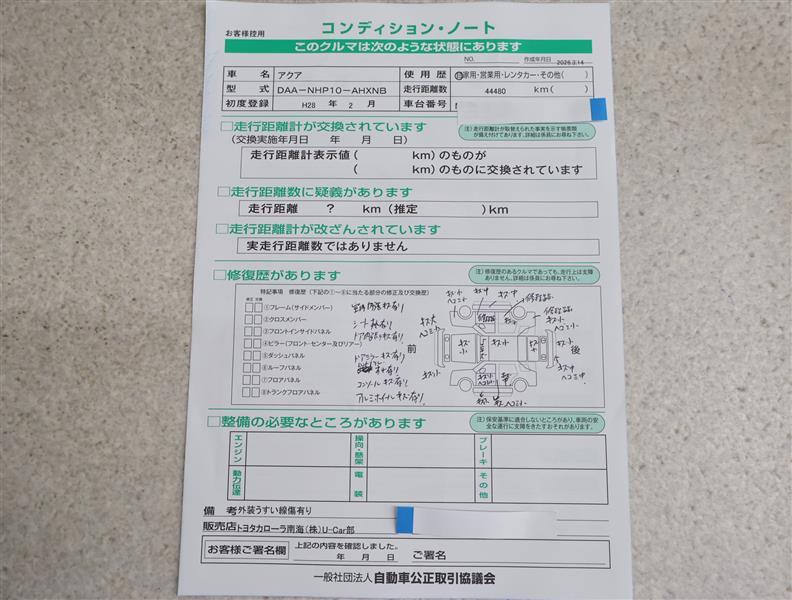 お客様控用
コンディション・ノート
このクルマは次のような状態にあります
NO. 作成年月日 2026.3.14
車名 アクア 使用歴 自家用・営業用・レンタカー・その他( )
型式 DAA-NHP10-AHXNB 走行距離数 44480 km( )
初度登録 H28 年 2 月 車台番号
□走行距離計が交換されています
注)走行距離計が取替えられた事実を示す装置類が備え付けてあります。詳細は係員にお尋ね下さい。
(交換実施年月日 年 月 日)
走行距離計表示値( km)のものが
( km)のものに交換されています
□走行距離数に疑義があります
走行距離 ? km (推定 )km
□走行距離計が改ざんされています
実走行距離数ではありません
□修復歴があります
注)修復歴のあるクルマであっても、走行上は支障ありません。詳細は係員にお尋ね下さい。
特記事項 修復歴(下記の①~⑧に当たる部分の修正及び交換歴)
修正 交換
①フレーム(サイドメンバー)
②クロスメンバー
③フロントインサイドパネル
④ピラー(フロント・センター及びリアー)
⑤ダッシュパネル
⑥ルーフパネル
⑦フロアパネル
⑧トランクフロアパネル
ドアミラーキズ有り
コンソールキズ有り
アルミホイールキズ有り
前
後
□整備の必要なところがあります
注)保安基準に適合しないところがあり、車両の安全な運行に支障をきたすおそれがあります。
エンジン 操向・懸架 ブレーキ
動力伝達 電装 その他
備考 外装うすい線傷有り
販売店 トヨタカローラ南海(株)U-Car部
お客様ご署名欄 上記の内容を確認しました。
年 月 日 ご署名
一般社団法人 自動車公正取引協議会